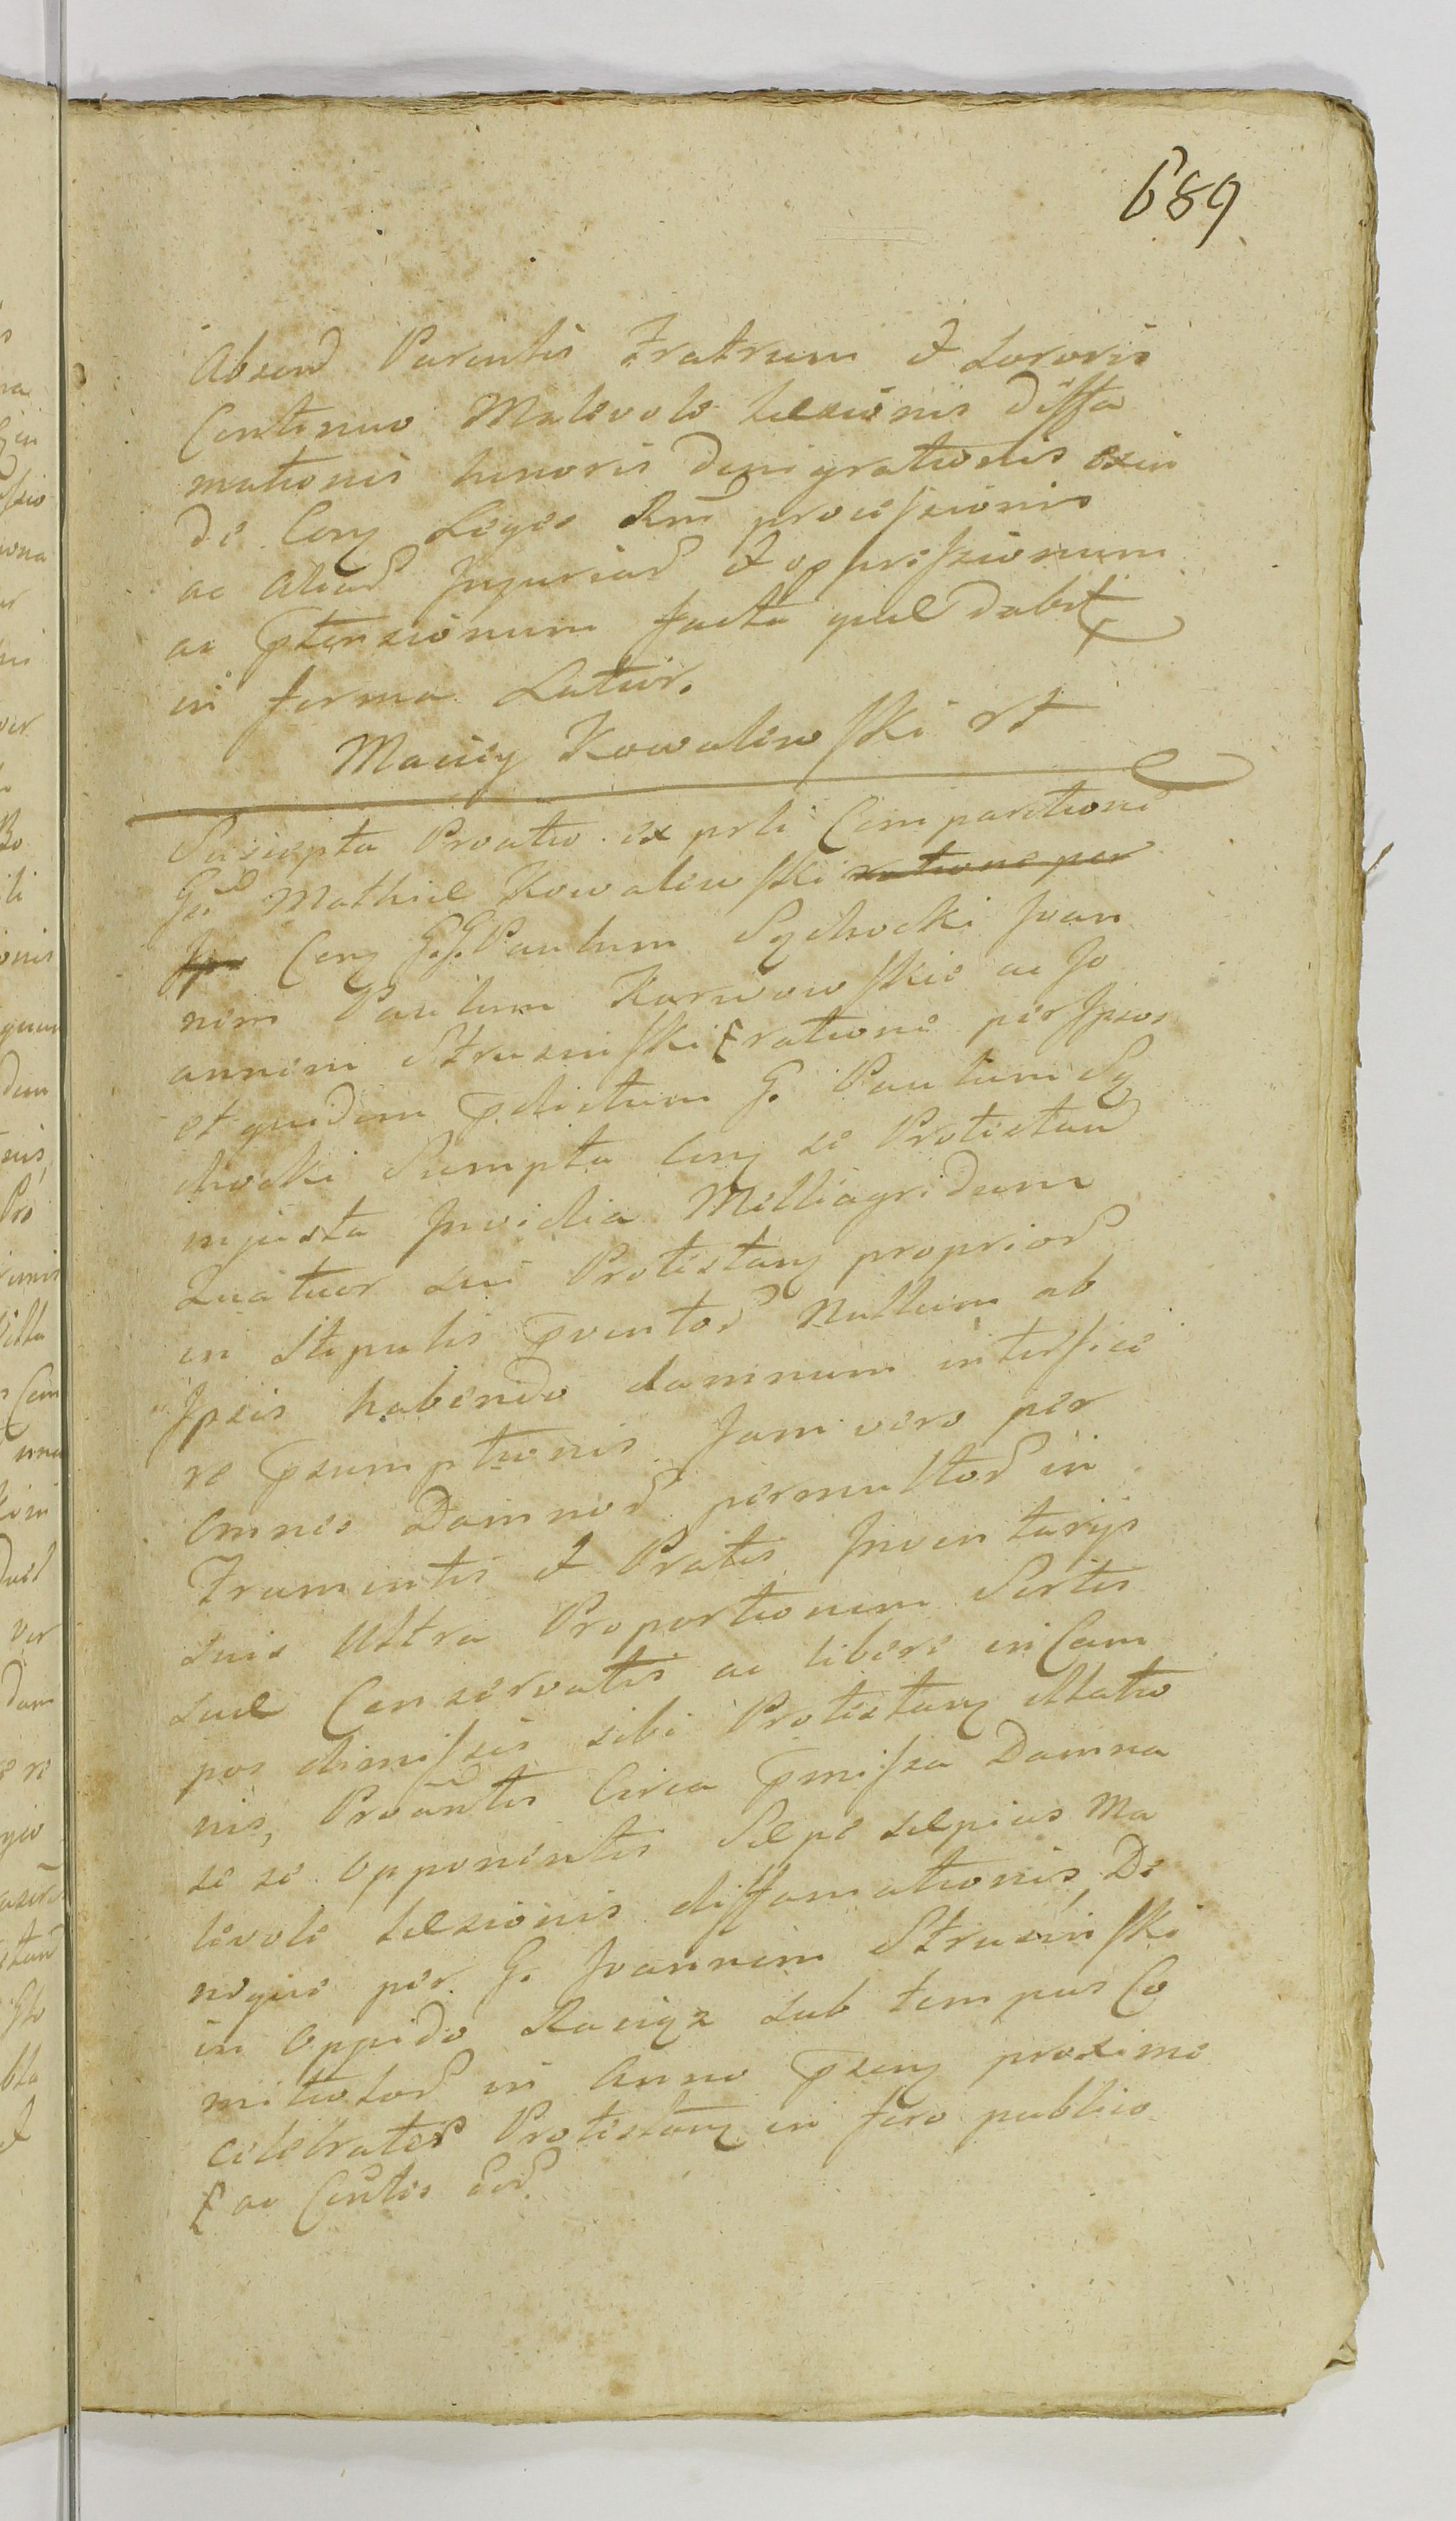 689
Absend Parentis Fratrum et Sororis
Continuo Malevole laesionis diffa
mationis honoris denigrationis exin
de Con Leges Rni processionis
ac aliad Injuriad et oppressionum
ac ptensionum facta quae dabit
in forma Latior.
Maciey Kowalewski rt
Suscepta Proatio ex prti Comparitione
Gsi Mathiae Kowalewski ratione per
Ips Con G. G. Paulum Sychocki Joan
nem Paulum Karwowskie ac Jo
annem Strusinski ratione per Ipsos
et quidem pdictum G. Paulum Sy
chocki Sumpta Con se Protestan
injusta Invidia Melliagridum
Quatuor sui Protestan propriod
in Stipulis pventod Nullum ab
Ipsis habendo damnum interfice
re psumptionis Jam vero per
omnes Damnod permultod in
Frumentis et Pratis Inventarijs
suis Ultra Proportionem Sortis
suae Conservatis ac libere in Cam
pos dimissis sibi Protestan illatio
nis, Proantis Circa pmissa Damna
se se opponentis Saepe saepius Ma
levole laesionis diffamationis De
nique per G. Joannem Strusinski
in oppido Raciąz sub tempus Co
mitiolod in Anno psen proxime
celebrated Protestan in foro publico
ac Centis eod